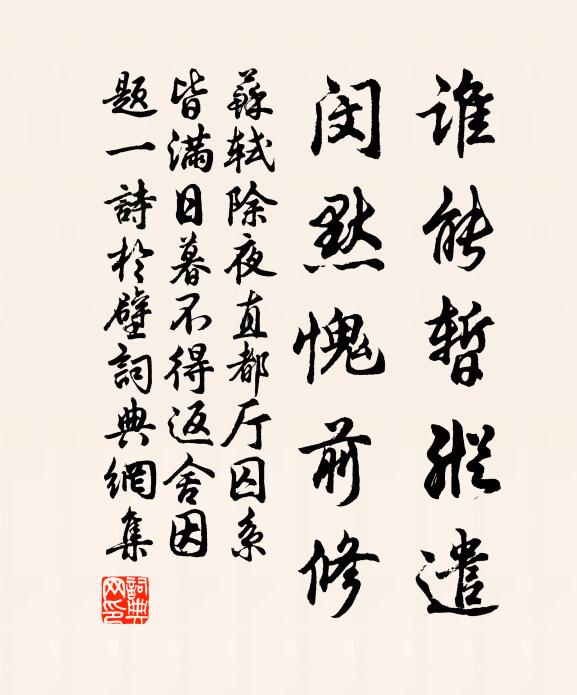 谁能暂縱遣
闵默愧前修
蘇軾除夜直都厅囚系
皆滿日暮不得返舍因
题一詩於壁詞典網集
詞典网印